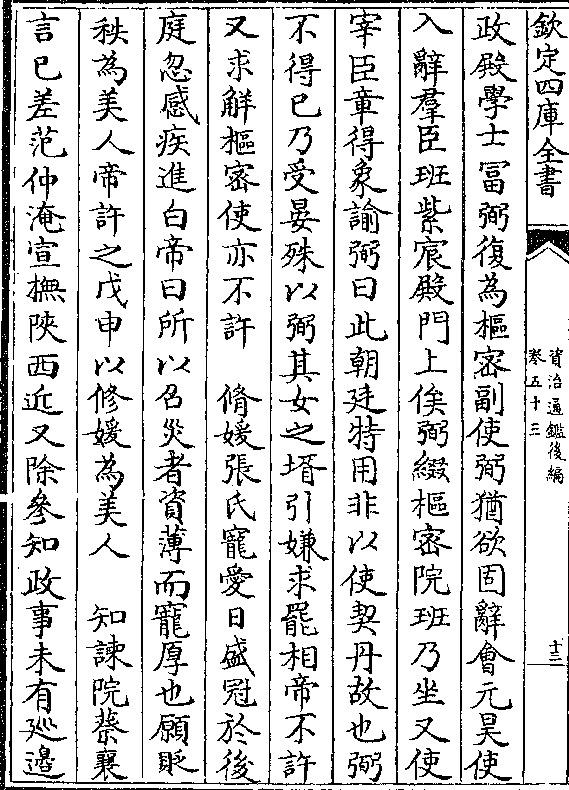 欽定四庫全書
資治通鑑後編
卷五十三
十二
政殿學士冨弼復為樞密副使弼猶欲固辭會元昊使
入辭羣臣班紫宸殿門上俟弼綴樞密院班乃坐又使
宰臣章得象諭弼曰此朝廷特用非以使契丹故也弼
不得已乃受晏殊以弼其女之壻引嫌求罷相帝不許
又求解樞密使亦不許　脩媛張氏寵愛日盛冠於後
庭忽感疾進白帝曰所以召災者資薄而寵厚也願貶
秩為美人帝許之戊申以修媛為美人　知諫院蔡襄
言已差范仲淹宣撫陜西近又除參知政事未有廵邉